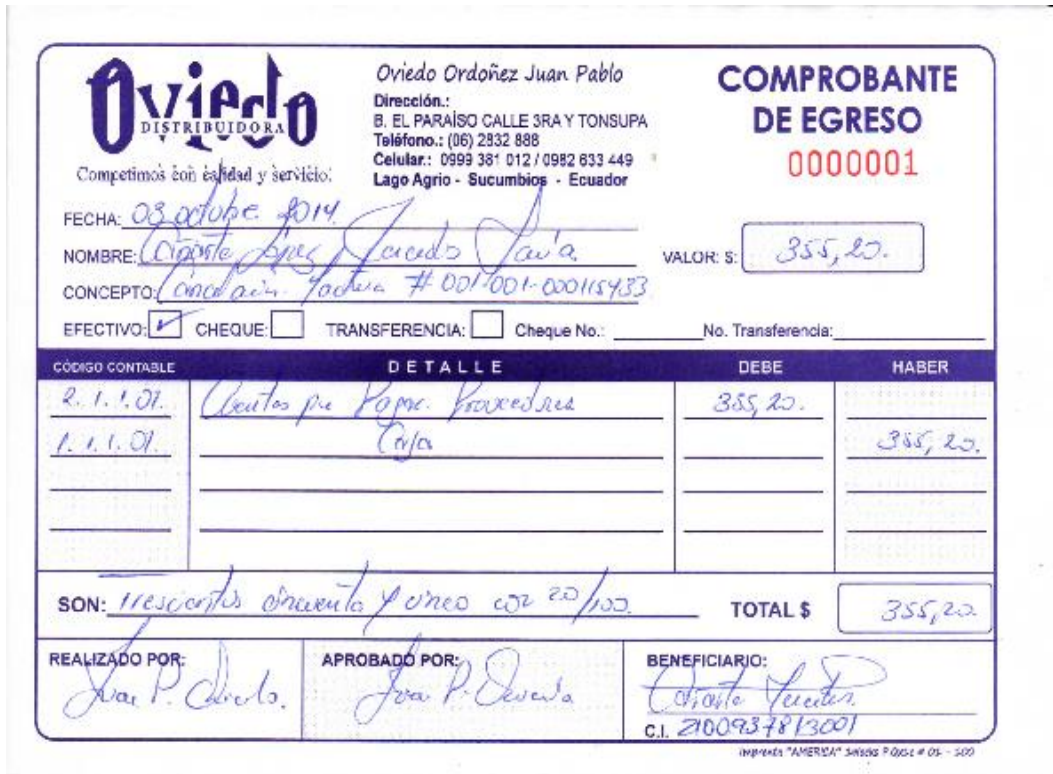 Oviedo
DISTRIBUIDORA
Competimos con calidad y servicio!
Oviedo Ordoñez Juan Pablo
Dirección.:
B. EL PARAÍSO CALLE 3RA Y TONSUPA
Teléfono.: (06) 2832 888
Celular.: 0999 381 012 / 0982 633 449
Lago Agrio - Sucumbios - Ecuador
COMPROBANTE
DE EGRESO
0000001
FECHA: 03 octubre 2014.
NOMBRE:
VALOR: $: 355,20.
CONCEPTO: Cancelación Factura # 001-001-000115433
EFECTIVO: ✓ CHEQUE: TRANSFERENCIA: Cheque No.: No. Transferencia:
CÓDIGO CONTABLE DETALLE DEBE HABER
2.1.1.01. Cuentas por Pagar Proveedores 355,20.
1.1.1.01. Caja 355,20.
SON: Trescientos cincuenta y cinco con 20/100. TOTAL $ 355,20.
REALIZADO POR: APROBADO POR: BENEFICIARIO:
Juan P. Oviedo. Juan P.
C.I. 2100937813001
Imprenta "AMERICA"